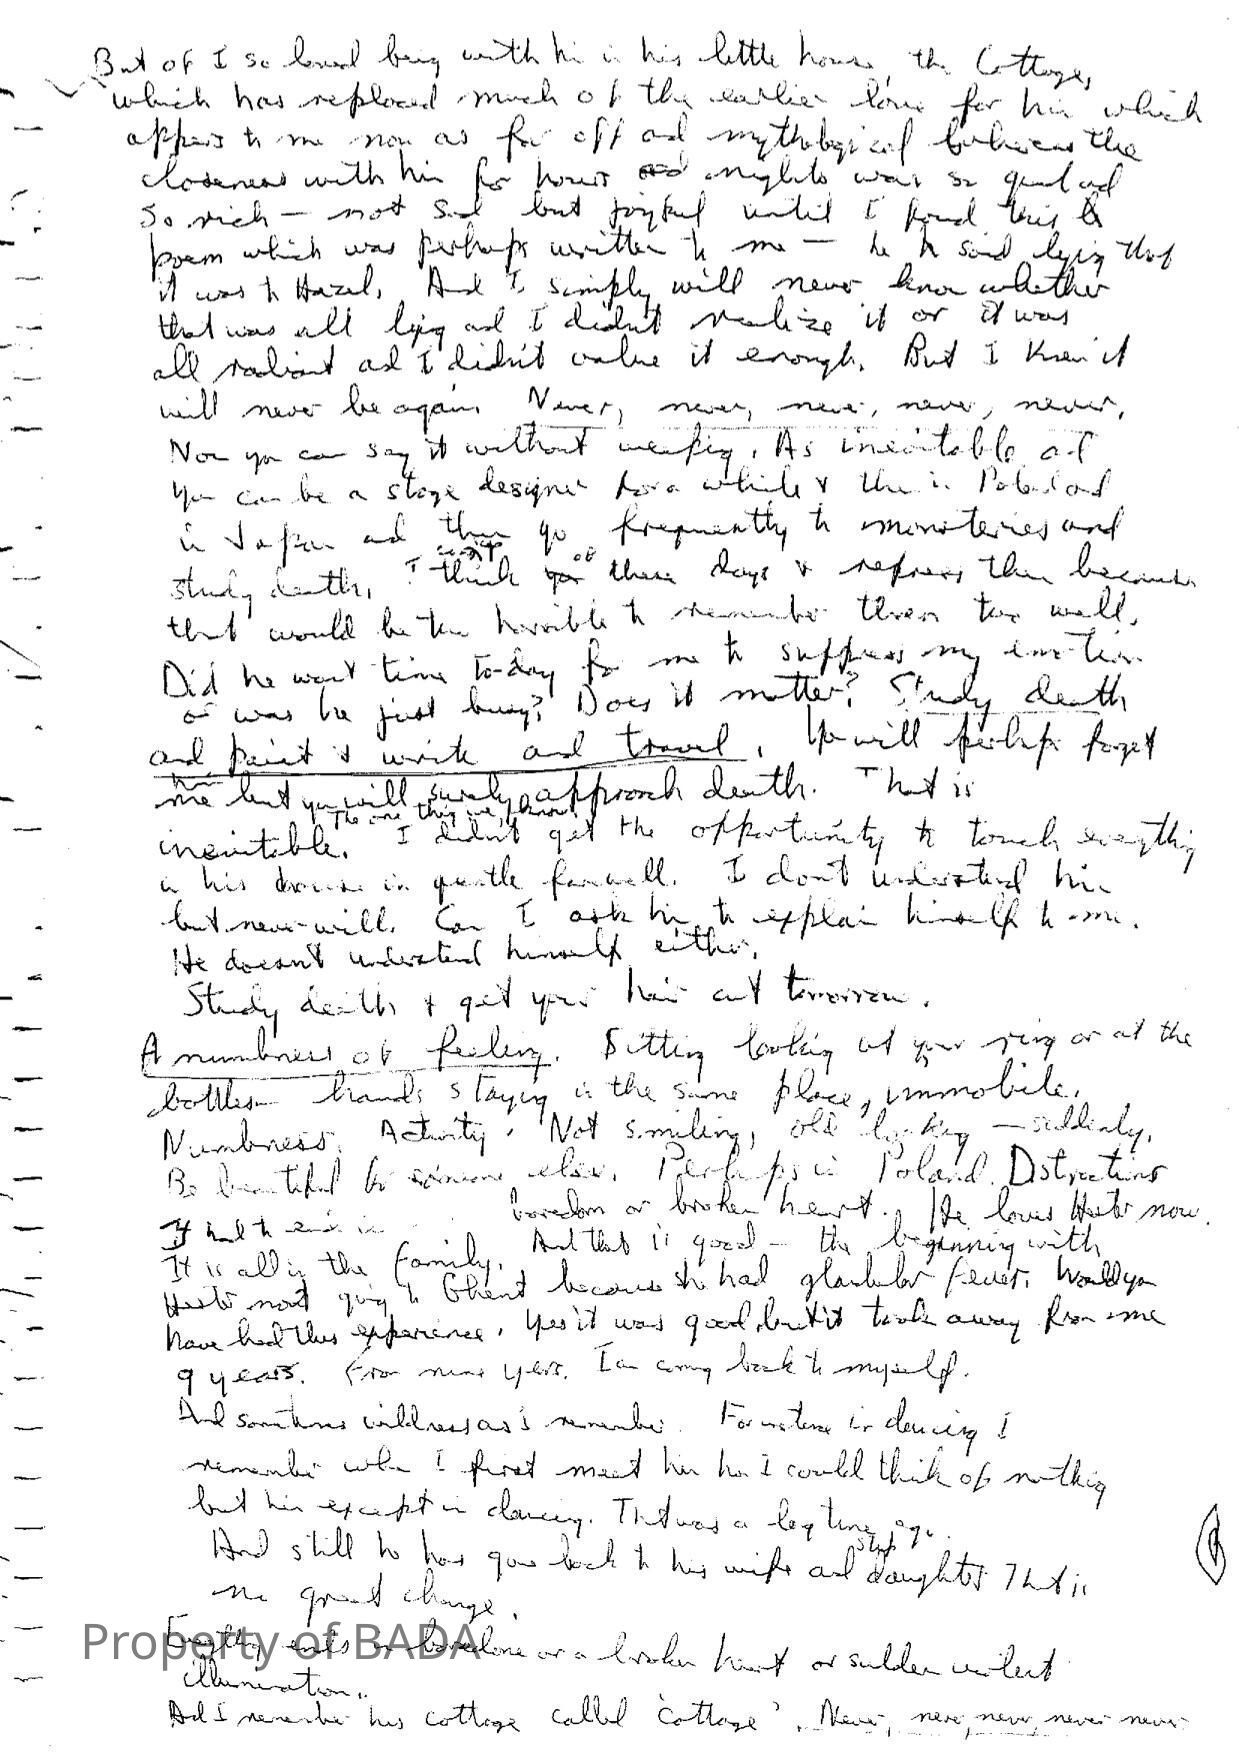 But of I so loved being with him in his little house, the Cottage,
which has replaced much of the earlier love for him which
appears to me now as far off and mythological whereas the
closeness with him for hours and nights was so good and
so rich — not sad but joyful until I found this
poem which was perhaps written to me — he said lying that
it was to Hazel. And I simply will never know whether
that was all lying and I didn't realize it or it was
all radiant and I didn't value it enough. But I knew it
will never be again. Never, never, never, never, never.
Now you can say it without weeping. As inevitable as
you can be a stage designer for a while & then in Poland and
in Japan and then go frequently to monasteries and
study death. I think of these days & repress them because
that would be too horrible to remember them too well.
Did he want time to-day for me to suppress my emotion
or was he just busy? Does it matter? Study death
and paint & write and travel. You will perhaps forget
me but you will surely approach death. That is
The one thing we know
inevitable. I didn't get the opportunity to touch everything
in his house in gentle farewell. I don't understand him
but never will. Can I ask him to explain himself to me.
He doesn't understand himself either.
Study death & get your hair cut tomorrow.
A numbness of feeling. Sitting looking at your ring or at the
bottles hands staying in the same place, immobile.
Numbness. Activity. Not smiling, old looking — suddenly.
Be beautiful for someone else. Perhaps in Poland. Distractions
It had to end in boredom or broken heart. He loves Hester now.
It is all in the family. And that is good — the beginning with
Hester not going to Ghent because she had glandular fever. Would you
have had this experience. Yes it was good, but it took away from me
9 years. From nine years. I am coming back to myself.
And sometimes wildness as I remember. For instance in dancing I
remember when I first meet him how I could think of nothing
but him except in dancing. That was a long time ago.
And still he has gone back to his wife and step daughter That is
no great change.
Everything ends in boredom or a broken heart or sudden violent
illumination.
And I remember his cottage called 'Cottage'. Never, never, never, never never
Property of BADA